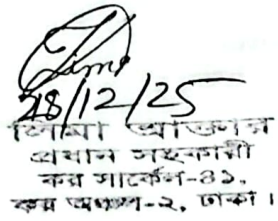 28/12/25
লিমা আক্তার
প্রধান সহকারী
কর সার্কেল-৪১,
কর অঞ্চল-২, ঢাকা।